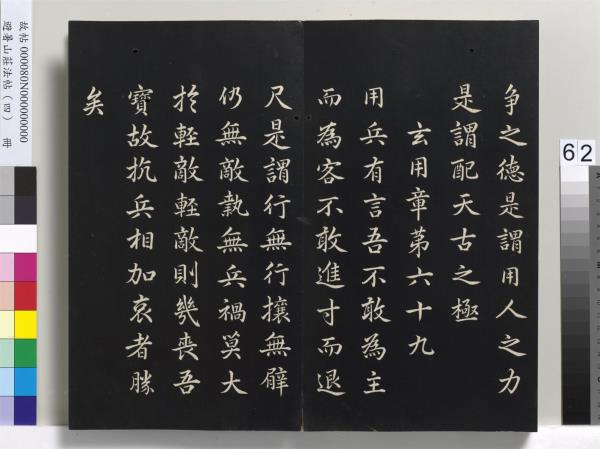 争之德是謂用人之力
是謂配天古之極
玄用章第六十九
用兵有言吾不敢為主
而為客不敢進寸而退
尺是謂行無行攘無臂
仍無敵執無兵禍莫大
於輕敵輕敵則幾喪吾
寶故抗兵相加哀者勝
矣
62
故帖 000080N000000000
避暑山莊法帖（四） 冊